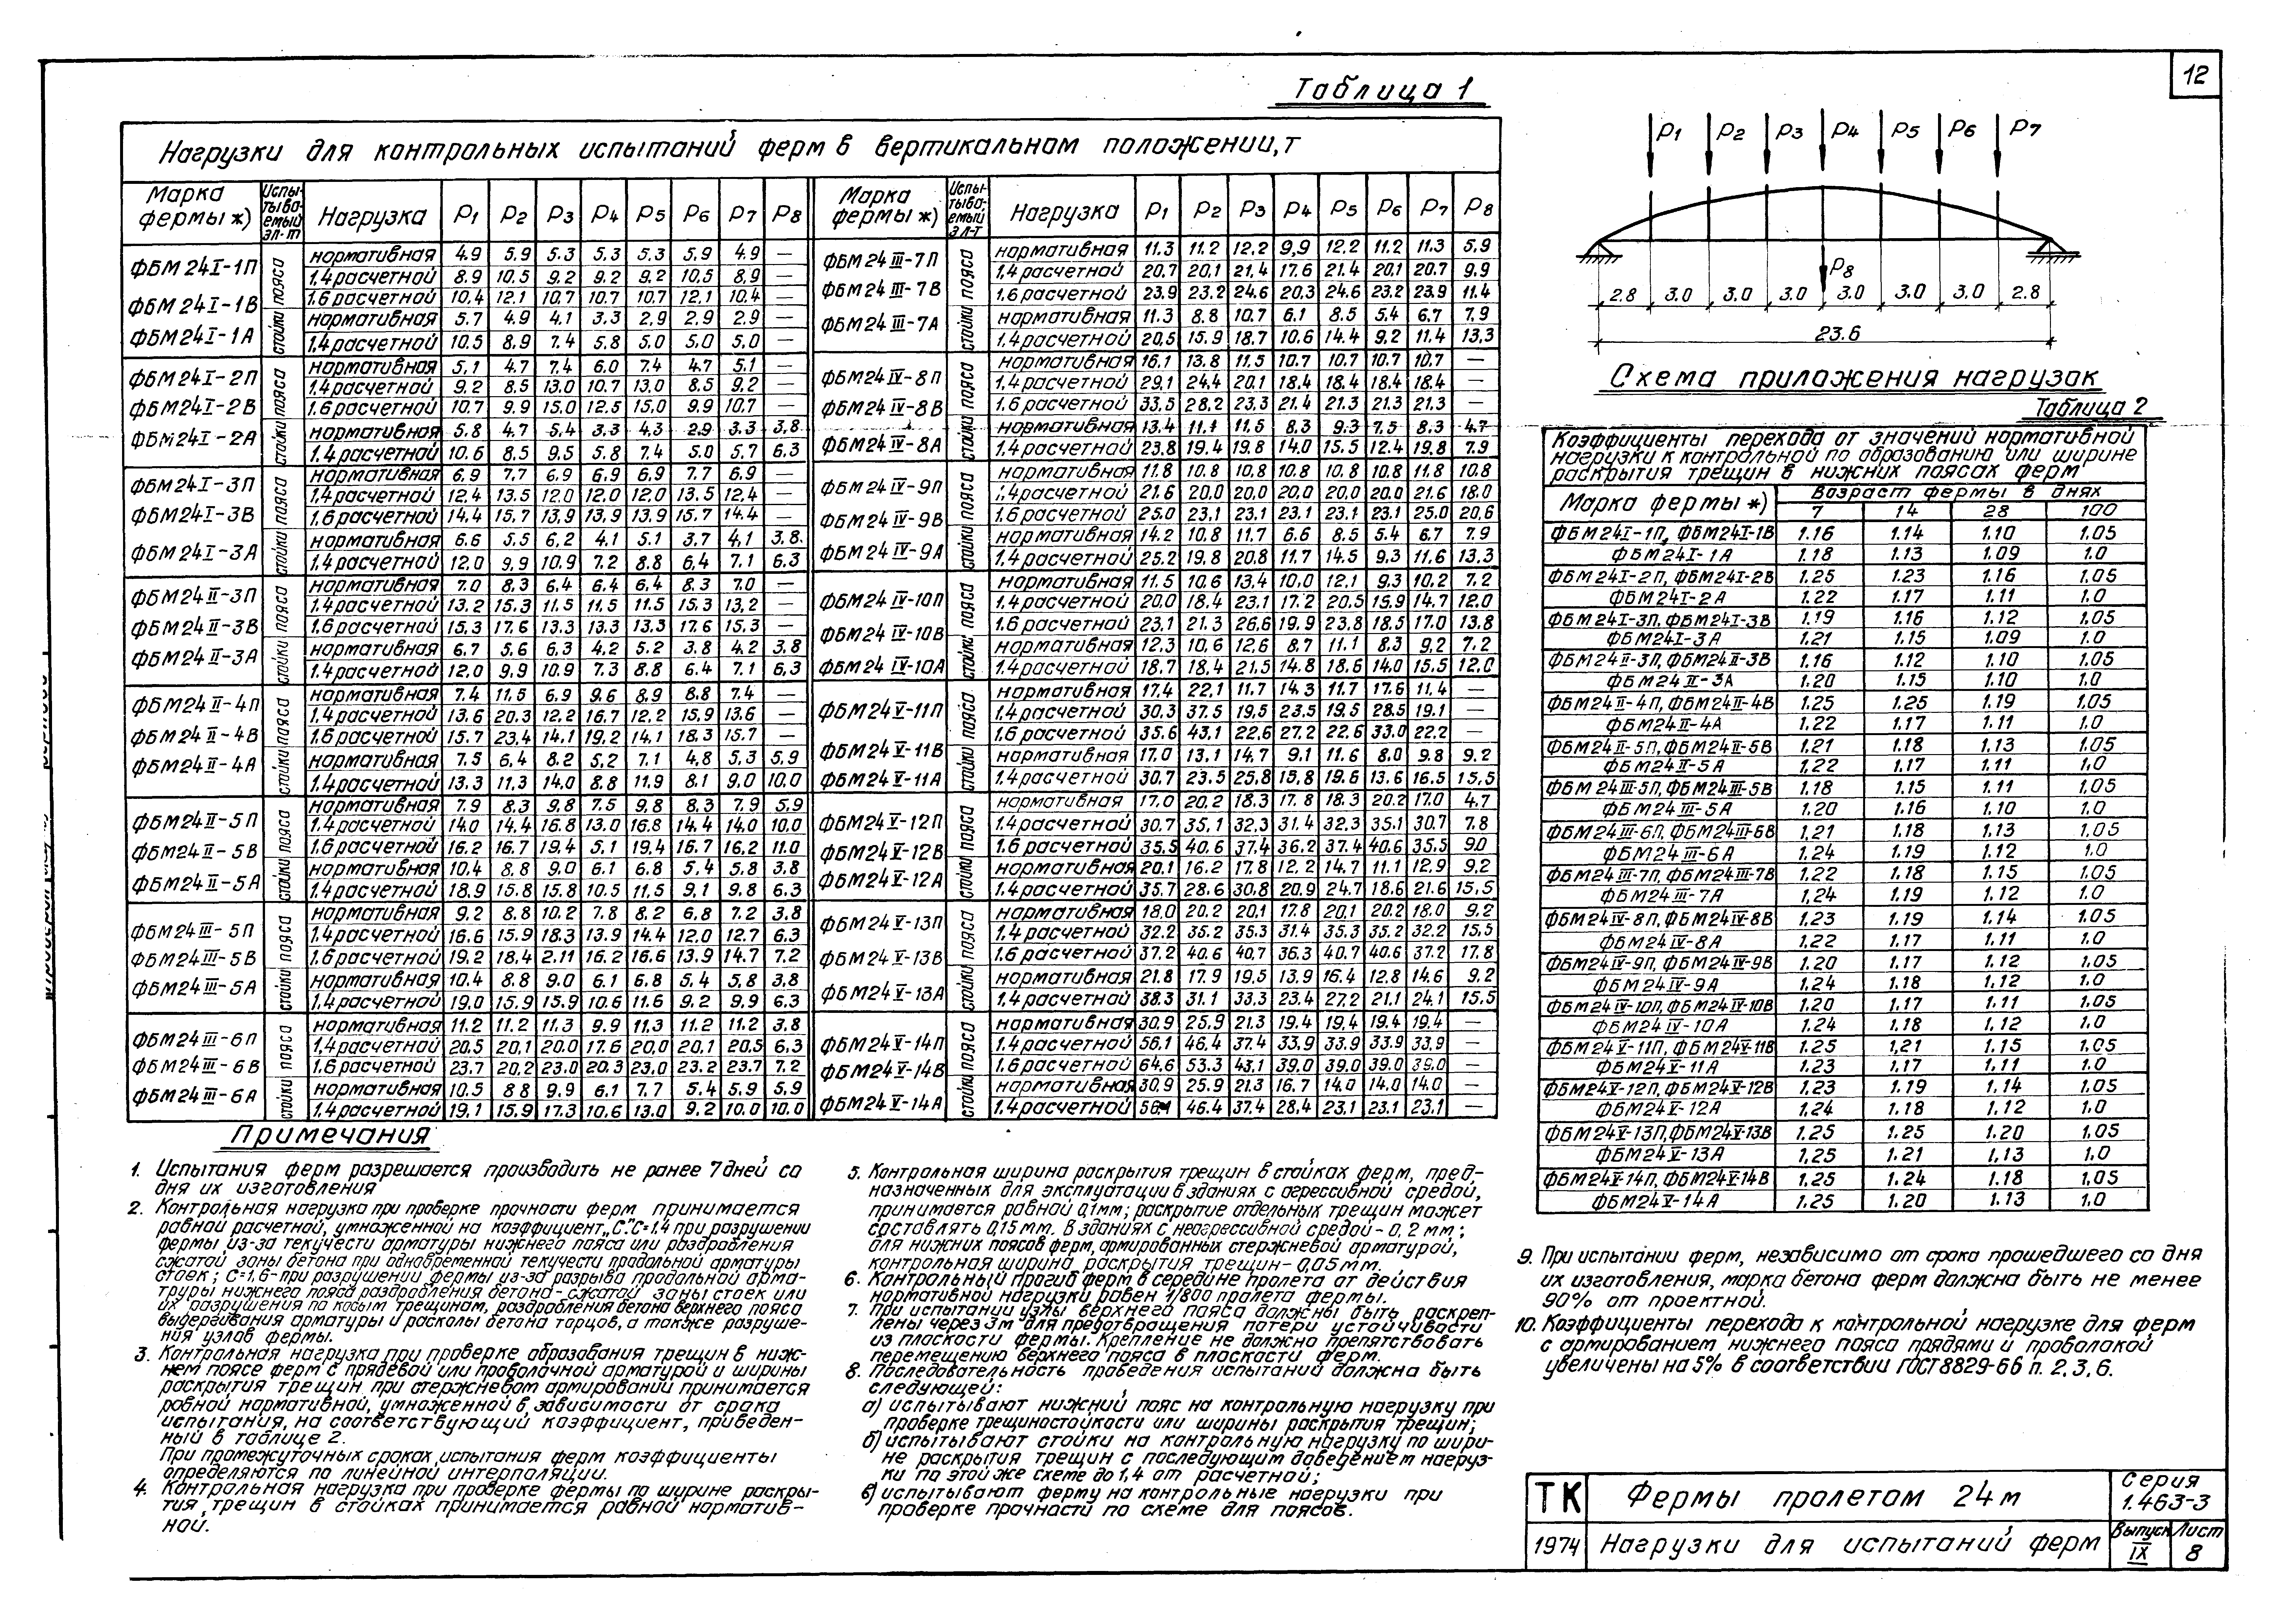 12
Таблица 1
Нагрузки для контрольных испытаний ферм в вертикальном положении, т
Марка фермы ж) Испытываемый эл-т Нагрузка P1 P2 P3 P4 P5 P6 P7 P8
ФБМ 24I-1П ФБМ 24I-1В ФБМ 24I-1А
пояса нормативная 4.9 5.9 5.3 5.3 5.3 5.9 4.9 —
1.4 расчетной 8.9 10.5 9.2 9.2 9.2 10.5 8.9 —
1.6 расчетной 10.4 12.1 10.7 10.7 10.7 12.1 10.4 —
стойки нормативная 5.7 4.9 4.1 3.3 2.9 2.9 2.9 —
1.4 расчетной 10.5 8.9 7.4 5.8 5.0 5.0 5.0 —
ФБМ 24I-2П ФБМ24I-2В ФБМ 24I-2А
пояса нормативная 5.1 4.7 7.4 6.0 7.4 4.7 5.1 —
1.4 расчетной 9.2 8.5 13.0 10.7 13.0 8.5 9.2 —
1.6 расчетной 10.7 9.9 15.0 12.5 15.0 9.9 10.7 —
стойки нормативная 5.8 4.7 5.4 3.3 4.3 2.9 3.3 3.8
1.4 расчетной 10.6 8.5 9.5 5.8 7.4 5.0 5.7 6.3
ФБМ 24I-3П ФБМ 24I-3В ФБМ 24I-3А
пояса нормативная 6.9 7.7 6.9 6.9 6.9 7.7 6.9 —
1.4 расчетной 12.4 13.5 12.0 12.0 12.0 13.5 12.4 —
1.6 расчетной 14.4 15.7 13.9 13.9 13.9 15.7 14.4 —
стойки нормативная 6.6 5.5 6.2 4.1 5.1 3.7 4.1 3.8
1.4 расчетной 12.0 9.9 10.9 7.2 8.8 6.4 7.1 6.3
ФБМ 24 II-3П ФБМ 24 II-3В ФБМ 24 II-3А
пояса нормативная 7.0 8.3 6.4 6.4 6.4 8.3 7.0 —
1.4 расчетной 13.2 15.3 11.5 11.5 11.5 15.3 13.2 —
1.6 расчетной 15.3 17.6 13.3 13.3 13.3 17.6 15.3 —
стойки нормативная 6.7 5.6 6.3 4.2 5.2 3.8 4.2 3.8
1.4 расчетной 12.0 9.9 10.9 7.3 8.8 6.4 7.1 6.3
ФБМ 24 II-4П ФБМ 24 II-4В ФБМ 24 II-4А
пояса нормативная 7.4 11.5 6.9 9.6 8.9 8.8 7.4 —
1.4 расчетной 13.6 20.3 12.2 16.7 12.2 15.9 13.6 —
1.6 расчетной 15.7 23.4 14.1 19.2 14.1 18.3 15.7 —
стойки нормативная 7.5 6.4 8.2 5.2 7.1 4.8 5.3 5.9
1.4 расчетной 13.3 11.3 14.0 8.8 11.9 8.1 9.0 10.0
ФБМ 24 II-5П ФБМ 24 II-5В ФБМ 24 II-5А
пояса нормативная 7.9 8.3 9.8 7.5 9.8 8.3 7.9 5.9
1.4 расчетной 14.0 14.4 16.8 13.0 16.8 14.4 14.0 10.0
1.6 расчетной 16.2 16.7 19.4 5.1 19.4 16.7 16.2 11.0
стойки нормативная 10.4 8.8 9.0 6.1 6.8 5.4 5.8 3.8
1.4 расчетной 18.9 15.8 15.8 10.5 11.5 9.1 9.8 6.3
ФБМ 24 III-5П ФБМ 24 III-5В ФБМ 24 III-5А
пояса нормативная 9.2 8.8 10.2 7.8 8.2 6.8 7.2 3.8
1.4 расчетной 16.6 15.9 18.3 13.9 14.4 12.0 12.7 6.3
1.6 расчетной 19.2 18.4 2.11 16.2 16.6 13.9 14.7 7.2
стойки нормативная 10.4 8.8 9.0 6.1 6.8 5.4 5.8 3.8
1.4 расчетной 19.0 15.9 15.9 10.6 11.6 9.2 9.9 6.3
ФБМ 24 III-6П ФБМ 24 III-6В ФБМ 24 III-6А
пояса нормативная 11.2 11.2 11.3 9.9 11.3 11.2 11.2 3.8
1.4 расчетной 20.5 20.1 20.0 17.6 20.0 20.1 20.5 6.3
1.6 расчетной 23.7 20.2 23.0 20.3 23.0 23.2 23.7 7.2
стойки нормативная 10.5 8.8 9.9 6.1 7.7 5.4 5.9 5.9
1.4 расчетной 19.1 15.9 17.3 10.6 13.0 9.2 10.0 10.0
Марка фермы ж) Испытываемый эл-т Нагрузка P1 P2 P3 P4 P5 P6 P7 P8
ФБМ 24 III-7П ФБМ 24 III-7В ФБМ 24 III-7А
пояса нормативная 11.3 11.2 12.2 9.9 12.2 11.2 11.3 5.9
1.4 расчетной 20.7 20.1 21.4 17.6 21.4 20.1 20.7 9.9
1.6 расчетной 23.9 23.2 24.6 20.3 24.6 23.2 23.9 11.4
стойки нормативная 11.3 8.8 10.7 6.1 8.5 5.4 6.7 7.9
1.4 расчетной 20.5 15.9 18.7 10.6 14.4 9.2 11.4 13.3
ФБМ 24 IV-8П ФБМ 24 IV-8В ФБМ 24 IV-8А
пояса нормативная 16.1 13.8 11.5 10.7 10.7 10.7 10.7 —
1.4 расчетной 29.1 24.4 20.1 18.4 18.4 18.4 18.4 —
1.6 расчетной 33.5 28.2 23.3 21.4 21.3 21.3 21.3 —
стойки нормативная 13.4 11.1 11.5 8.3 9.3 7.5 8.3 4.7
1.4 расчетной 23.8 19.4 19.8 14.0 15.5 12.4 19.8 7.9
ФБМ 24 IV-9П ФБМ 24 IV-9В ФБМ 24 IV-9А
пояса нормативная 11.8 10.8 10.8 10.8 10.8 10.8 11.8 10.8
1.4 расчетной 21.6 20.0 20.0 20.0 20.0 20.0 21.6 18.0
1.6 расчетной 25.0 23.1 23.1 23.1 23.1 23.1 25.0 20.6
стойки нормативная 14.2 10.8 11.7 6.6 8.5 5.4 6.7 7.9
1.4 расчетной 25.2 19.8 20.8 11.7 14.5 9.3 11.6 13.3
ФБМ 24 IV-10П ФБМ 24 IV-10В ФБМ 24 IV-10А
пояса нормативная 11.5 10.6 13.4 10.0 12.1 9.3 10.2 7.2
1.4 расчетной 20.0 18.4 23.1 17.2 20.5 15.9 14.7 12.0
1.6 расчетной 23.1 21.3 26.6 19.9 23.8 18.5 17.0 13.8
стойки нормативная 12.3 10.6 12.6 8.7 11.1 8.3 9.2 7.2
1.4 расчетной 18.7 18.4 21.5 14.8 18.6 14.0 15.5 12.0
ФБМ 24 V-11П ФБМ 24 V-11В ФБМ 24 V-11А
пояса нормативная 17.4 22.1 11.7 14.3 11.7 17.6 11.4 —
1.4 расчетной 30.3 37.5 19.5 23.5 19.5 28.5 19.1 —
1.6 расчетной 35.6 43.1 22.6 27.2 22.6 33.0 22.2 —
стойки нормативная 17.0 13.1 14.7 9.1 11.6 8.0 9.8 9.2
1.4 расчетной 30.7 23.5 25.8 15.8 19.6 13.6 16.5 15.5
ФБМ 24 V-12П ФБМ 24 V-12В ФБМ 24 V-12А
пояса нормативная 17.0 20.2 18.3 17.8 18.3 20.2 17.0 4.7
1.4 расчетной 30.7 35.1 32.3 31.4 32.3 35.1 30.7 7.8
1.6 расчетной 35.5 40.6 37.4 36.2 37.4 40.6 35.5 9.0
стойки нормативная 20.1 16.2 17.8 12.2 14.7 11.1 12.9 9.2
1.4 расчетной 35.7 28.6 30.8 20.9 24.7 18.6 21.6 15.5
ФБМ 24 V-13П ФБМ 24 V-13В ФБМ 24 V-13А
пояса нормативная 18.0 20.2 20.1 17.8 20.1 20.2 18.0 9.2
1.4 расчетной 32.2 35.2 35.3 31.4 35.3 35.2 32.2 15.5
1.6 расчетной 37.2 40.6 40.7 36.3 40.7 40.6 37.2 17.8
стойки нормативная 21.8 17.9 19.5 13.9 16.4 12.8 14.6 9.2
1.4 расчетной 38.3 31.1 33.3 23.4 27.2 21.1 24.1 15.5
ФБМ 24 V-14П ФБМ 24 V-14В ФБМ 24 V-14А
пояса нормативная 30.9 25.9 21.3 19.4 19.4 19.4 19.4 —
1.4 расчетной 56.1 46.4 37.4 33.9 33.9 33.9 33.9 —
1.6 расчетной 64.6 53.3 43.1 39.0 39.0 39.0 39.0 —
стойки нормативная 30.9 25.9 21.3 16.7 14.0 14.0 14.0 —
1.4 расчетной 56.1 46.4 37.4 28.4 23.1 23.1 23.1 —
P1 P2 P3 P4 P5 P6 P7
P8
2.8 3.0 3.0 3.0 3.0 3.0 3.0 2.8
23.6
Схема приложения нагрузок
Таблица 2
Коэффициенты перехода от значений нормативной
нагрузки к контрольной по образованию или ширине
раскрытия трещин в нижних поясах ферм
Марка фермы ж) Возраст фермы в днях
7 14 28 100
ФБМ 24I-1П, ФБМ24I-1В 1.16 1.14 1.10 1.05
ФБМ24I-1А 1.18 1.13 1.09 1.0
ФБМ24I-2П, ФБМ24I-2В 1.25 1.23 1.16 1.05
ФБМ24I-2А 1.22 1.17 1.11 1.0
ФБМ24I-3П, ФБМ24I-3В 1.19 1.16 1.12 1.05
ФБМ24I-3А 1.21 1.15 1.09 1.0
ФБМ24II-3П, ФБМ24II-3В 1.16 1.12 1.10 1.05
ФБМ24II-3А 1.20 1.15 1.10 1.0
ФБМ24II-4П, ФБМ24II-4В 1.25 1.25 1.19 1.05
ФБМ24II-4А 1.22 1.17 1.11 1.0
ФБМ24II-5П, ФБМ24II-5В 1.21 1.18 1.13 1.05
ФБМ24II-5А 1.22 1.17 1.11 1.0
ФБМ 24III-5П, ФБМ24III-5В 1.18 1.15 1.11 1.05
ФБМ24III-5А 1.20 1.16 1.10 1.0
ФБМ24III-6П, ФБМ24III-6В 1.21 1.18 1.13 1.05
ФБМ24III-6А 1.24 1.19 1.12 1.0
ФБМ24III-7П, ФБМ24III-7В 1.22 1.18 1.15 1.05
ФБМ24III-7А 1.24 1.19 1.12 1.0
ФБМ24IV-8П, ФБМ24IV-8В 1.23 1.19 1.14 1.05
ФБМ24IV-8А 1.22 1.17 1.11 1.0
ФБМ24IV-9П, ФБМ24IV-9В 1.20 1.17 1.12 1.05
ФБМ24IV-9А 1.24 1.18 1.12 1.0
ФБМ24IV-10П, ФБМ24IV-10В 1.20 1.17 1.11 1.05
ФБМ24IV-10А 1.24 1.18 1.12 1.0
ФБМ24V-11П, ФБМ24V-11В 1.25 1.21 1.15 1.05
ФБМ24V-11А 1.23 1.17 1.11 1.0
ФБМ24V-12П, ФБМ24V-12В 1.23 1.19 1.14 1.05
ФБМ24V-12А 1.24 1.18 1.12 1.0
ФБМ24V-13П, ФБМ24V-13В 1.25 1.25 1.20 1.05
ФБМ24V-13А 1.25 1.21 1.13 1.0
ФБМ24V-14П, ФБМ24V-14В 1.25 1.24 1.18 1.05
ФБМ24V-14А 1.25 1.20 1.13 1.0
Примечания
1. Испытания ферм разрешается производить не ранее 7 дней со
дня их изготовления
2. Контрольная нагрузка при проверке прочности ферм принимается
равной расчетной, умноженной на коэффициент „С." С=1,4 при разрушении
фермы из-за текучести арматуры нижнего пояса или раздробления
сжатой зоны бетона при одновременной текучести продольной арматуры
стоек; С=1,6-при разрушении фермы из-за разрыва продольной арма-
туры нижнего пояса раздробления бетона-сжатой зоны стоек или
их разрушения по косым трещинам, раздробления бетона верхнего пояса
выдергивания арматуры и расколы бетона торцов, а также разруше-
ния узлов фермы.
3. Контрольная нагрузка при проверке образования трещин в ниж-
нем поясе ферм с прядевой или проволочной арматурой и ширины
раскрытия трещин при стержневом армировании принимается
равной нормативной, умноженной в зависимости от срока
испытания, на соответствующий коэффициент, приведен-
ный в таблице 2.
При промежуточных сроках испытания ферм коэффициенты
определяются по линейной интерполяции.
4. Контрольная нагрузка при проверке фермы по ширине раскры-
тия трещин в стойках принимается равной норматив-
ной.
5. Контрольная ширина раскрытия трещин в стойках ферм, пред-
назначенных для эксплуатации в зданиях с агрессивной средой,
принимается равной 0,1мм; раскрытие отдельных трещин может
составлять 0,15 мм. В зданиях с неагрессивной средой-0,2 мм;
для нижних поясов ферм, армированных стержневой арматурой,
контрольная ширина раскрытия трещин-0,05 мм.
6. Контрольный прогиб ферм в середине пролета от действия
нормативной нагрузки равен 1/800 пролета фермы.
7. При испытании узлы верхнего пояса должны быть раскреп-
лены через 3м для предотвращения потери устойчивости
из плоскости фермы. Крепление не должно препятствовать
перемещению верхнего пояса в плоскости ферм.
8. Последовательность проведения испытаний должна быть
следующей:
а) испытывают нижний пояс на контрольную нагрузку при
проверке трещиностойкости или ширины раскрытия трещин;
б) испытывают стойки на контрольную нагрузку по шири-
не раскрытия трещин с последующим доведением нагруз-
ки по этой же схеме до 1,4 от расчетной;
в) испытывают ферму на контрольные нагрузки при
проверке прочности по схеме для поясов.
9. При испытании ферм, независимо от срока прошедшего со дня
их изготовления, марка бетона ферм должна быть не менее
90% от проектной.
10. Коэффициенты перехода к контрольной нагрузке для ферм
с армированием нижнего пояса прядями и проволокой
увеличены на 5% в соответствии ГОСТ 8829-66 п. 2.3.6.
ТК Фермы пролетом 24м Серия 1.463-3
1974 Нагрузки для испытаний ферм Выпуск IX Лист 8